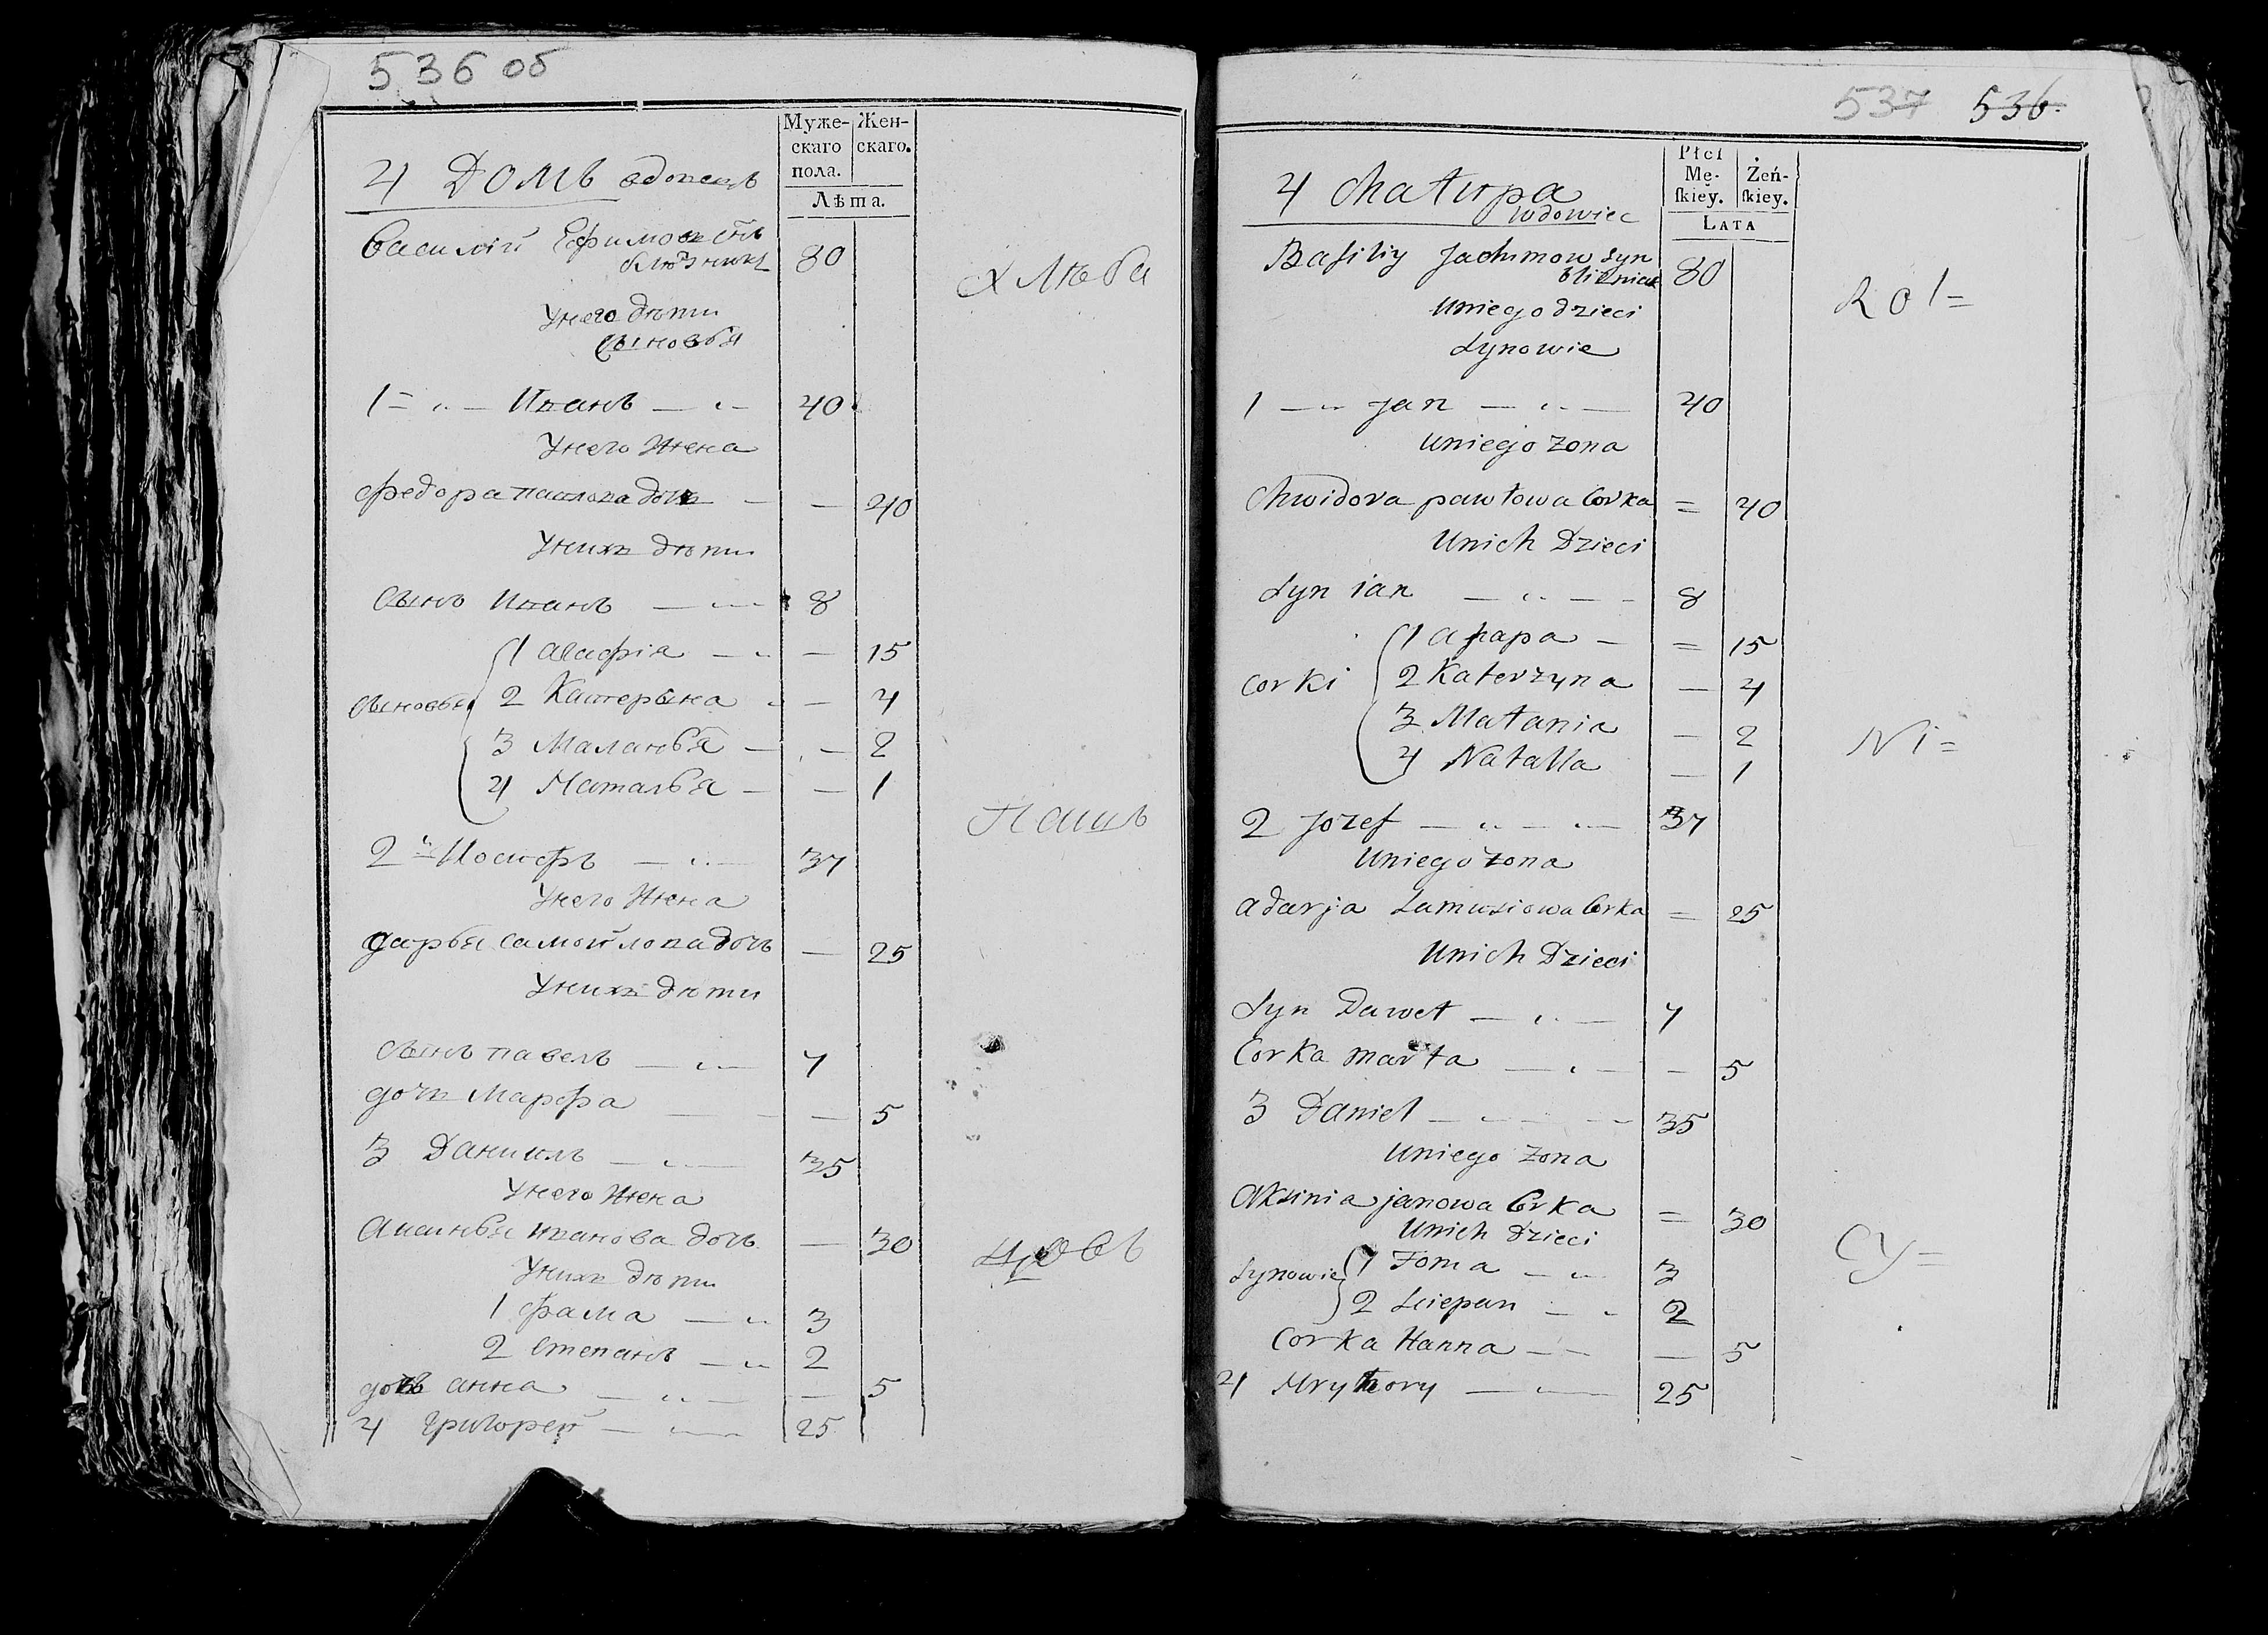 536 об
Муже-
скаго
пола.
Жен-
скаго.
Лѣта.
4 Домъ вдовецъ
Василій Ефимовъ сынъ
близнюкъ 80
Хлѣба
У него дѣти
Сыновья
1 = „ — Иванъ — „ — 40
У него жена
Федора павлова дочь — — 40
У нихъ дѣти
Сынъ Иванъ — „ — 8
1 агафія — „ — 15
Сыновья 2 Катерына „ — 4
3 Маланья — „ — 2
4 Наталья — — 1
Пашъ
2 „ Иосифъ — „ — 37
У него жена
дарья самойлова дочь — 25
У нихъ дѣти
Сынъ павелъ — „ — 7
дочь Марфа — — 5
3 Даниилъ — „ — 35
У него жена
Аксинья иванова дочь — 30
цовъ
У нихъ дѣти
1 фама — „ 3
2 Степанъ — „ 2
дочь анна — „ — — 5
4 григорей — „ — 25
537 536.
Płci
Mę-
ſkiey.
Żeń-
ſkiey.
LATA
4 Chałupa
wdowiec
Basiliy Jachimow syn
blizniak 80
Rol=
Uniego dzieci
Synowie
1 — „ Jan — „ — 40
Uniego zona
Chwidora pawłowa Corka = 40
Unich Dzieci
Syn ian — „ — 8
1 ahapa — = 15
Corki 2 Katerzyna — 4
3 Małania — 2
4 Natalla — 1
Ni=
2 Jozef — „ — „ — 37
Uniego zona
adarja Samusiowa Corka = 25
Unich Dzieci
Syn Paweł — „ — 7
Corka marta — „ — — 5
3 Daniel — „ — 35
Uniego zona
Aksinia janowa Corka = 30
Unich Dzieci
Cy=
Synowie 1 Foma — „ 3
2 Sciepan — „ 2
Corka Hanna — — — 5
4 Hryhory — „ — 25